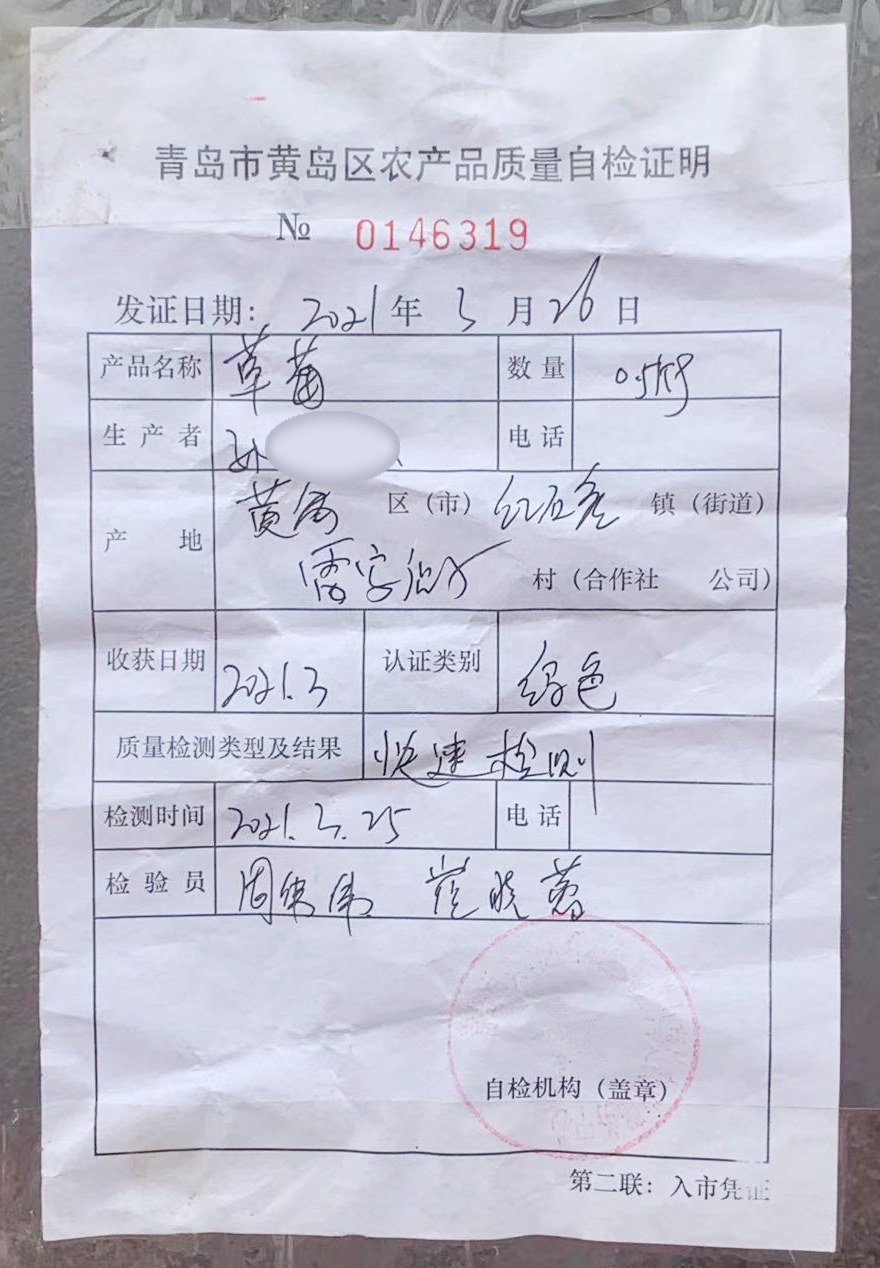 青岛市黄岛区农产品质量自检证明
№ 0146319
发证日期: 2021年3月26日
产品名称 草莓 数量 0.5kg
生产者 孙 电话
产地 黄岛 区(市) 红石崖 镇(街道)
村(合作社 公司)
收获日期 2021.3 认证类别 绿色
质量检测类型及结果 快速检测
检测时间 2021.3.25 电话
检验员 周伟伟 崔晓蓉
自检机构(盖章)
第二联:入市凭证